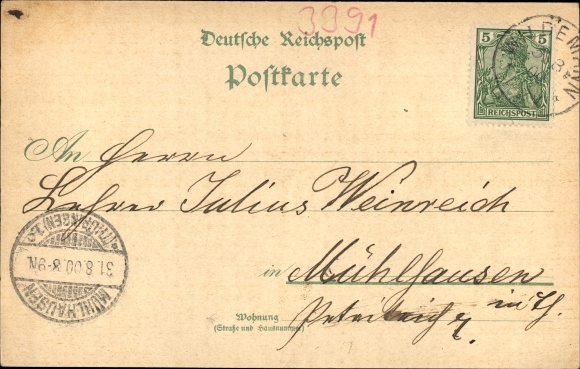 3391
Deutsche Reichspost
Postkarte
5 5
REICHSPOST
An Herrn
Lehrer Julius Weinreich
in Mühlhausen
in Th.
Wohnung
(Straße und Hausnummer)
MÜHLHAUSEN
(THÜRINGEN)
31.8.00.8-9N.